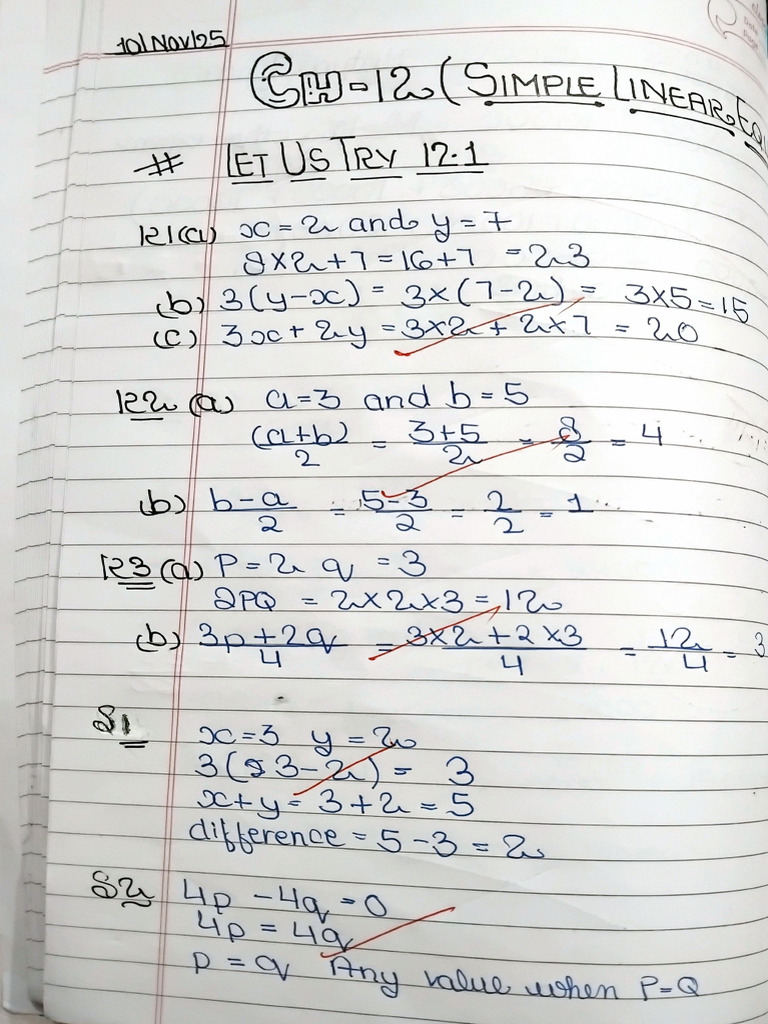 10/Nov/25
CH-12 (SIMPLE LINEAR
# LET US TRY 12.1
R1(a) x=2 and y=7
8×2+7=16+7 =23
(b) 3(y-x) = 3×(7-2) = 3×5=15
(c) 3x+2y = 3×2+2×7 = 20
R2 (a) a=3 and b=5
(a+b)/2 = 3+5/2 = 8/2 = 4
(b) b-a/2 = 5-3/2 = 2/2 = 1
R3 (a) P=2 q=3
2PQ = 2×2×3=12
(b) 3p+2q/4 = 3×2+2×3/4 = 12/4 = 3
S1
x=3 y=2
3(3-2) = 3
x+y= 3+2=5
difference = 5-3=2
S2 4p-4q=0
4p=4q
p=q Any value when P=Q